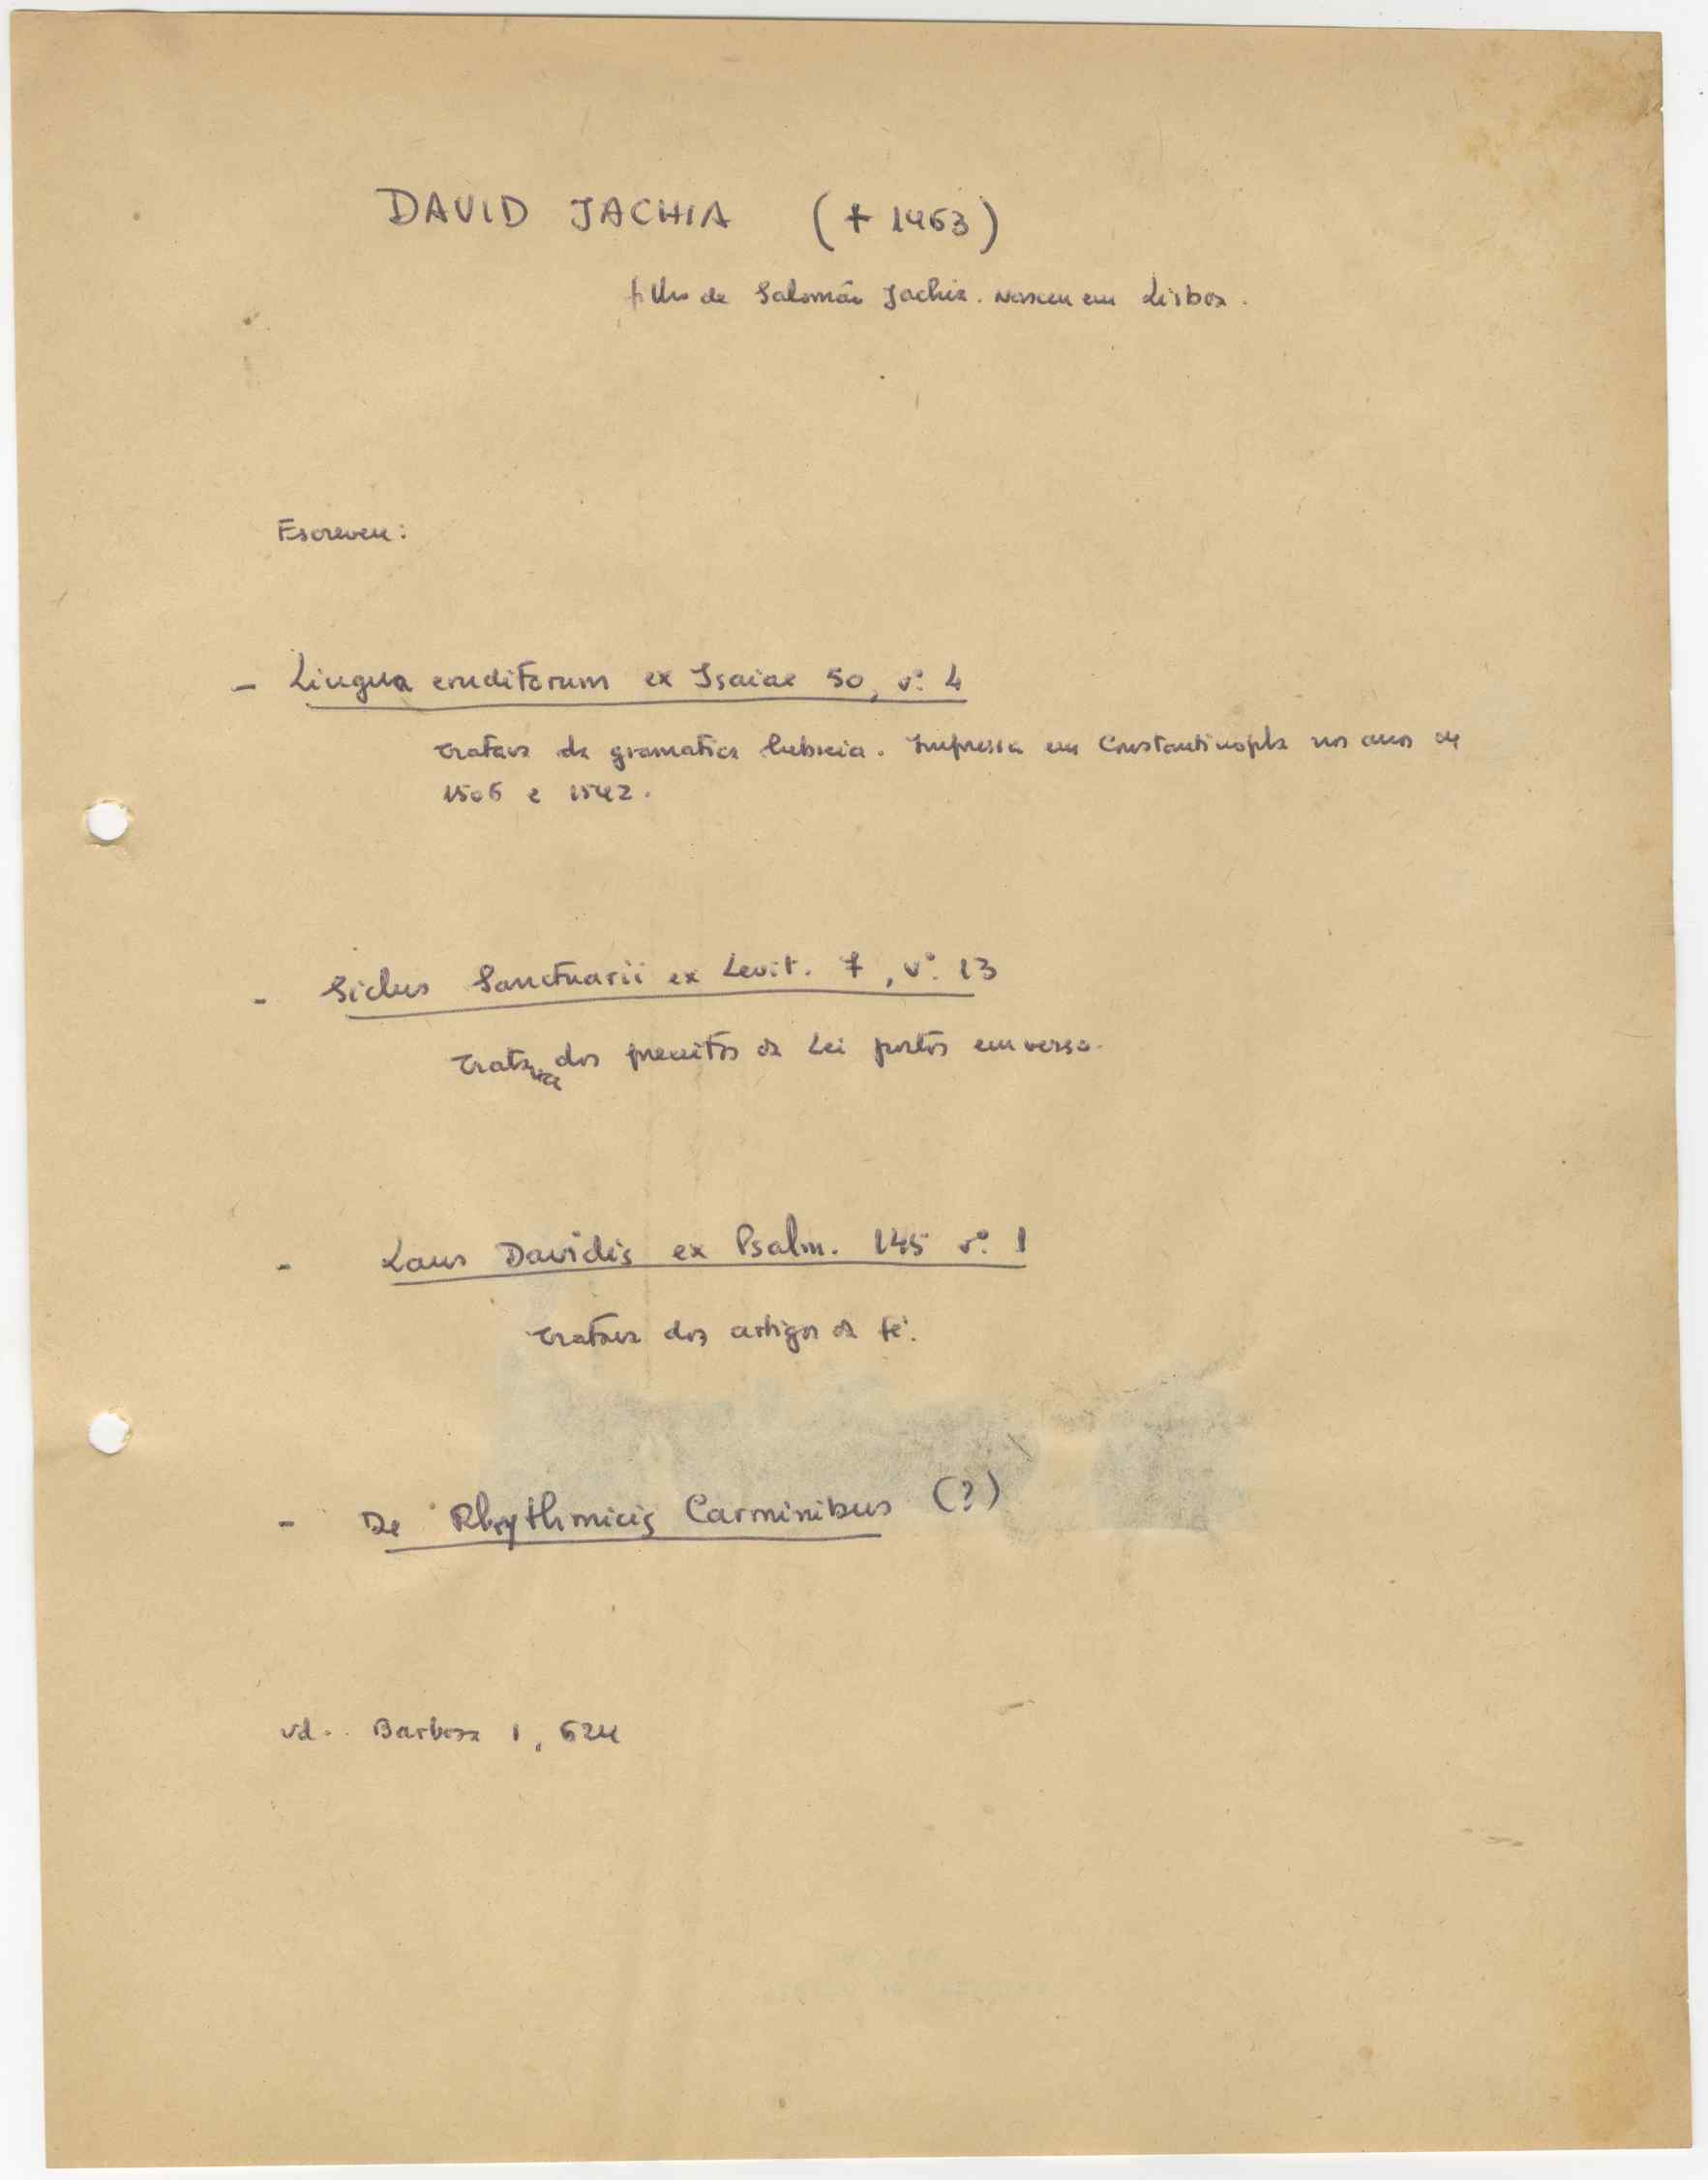 DAVID JACHIA (+ 1463)
filho de Salomão Jachia. Nasceu em Lisboa.
Escreveu:
- Lingua eruditorum ex Isaiae 50, vº. 4
tratava da gramatica hebreia. Impressa em Constantinopla nos anos de
1506 e 1542.
- Siclus Sanctuarii ex Levit. 7, vº. 13
tratava dos preceitos da Lei postos em verso.
- Laus Davidis ex Psalm. 145 vº. 1
tratava dos artigos da fé.
- De Rhythmicis Carminibus (?)
vd. Barbosa 1, 624